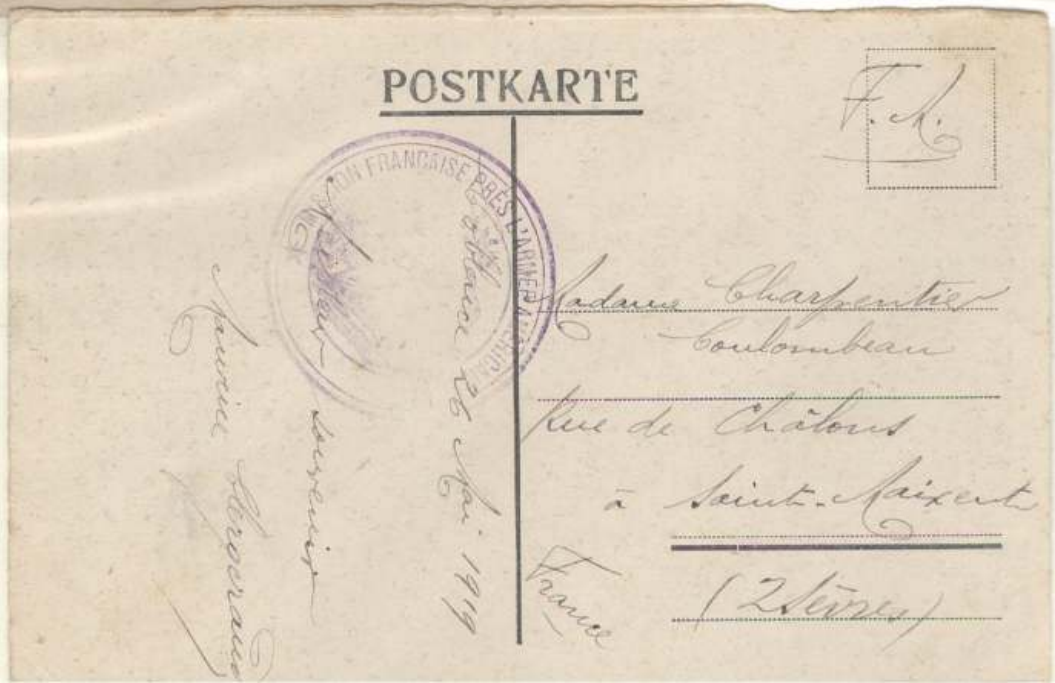 POSTKARTE
F. M.
FRANÇAISE PRÈS L'ARMÉE
26 Mai 1919
souvenir
Maurice
Madame Charpentier
Coulombeau
Rue de Châlons
à Saint-Maixent
(2 Sèvres)
France